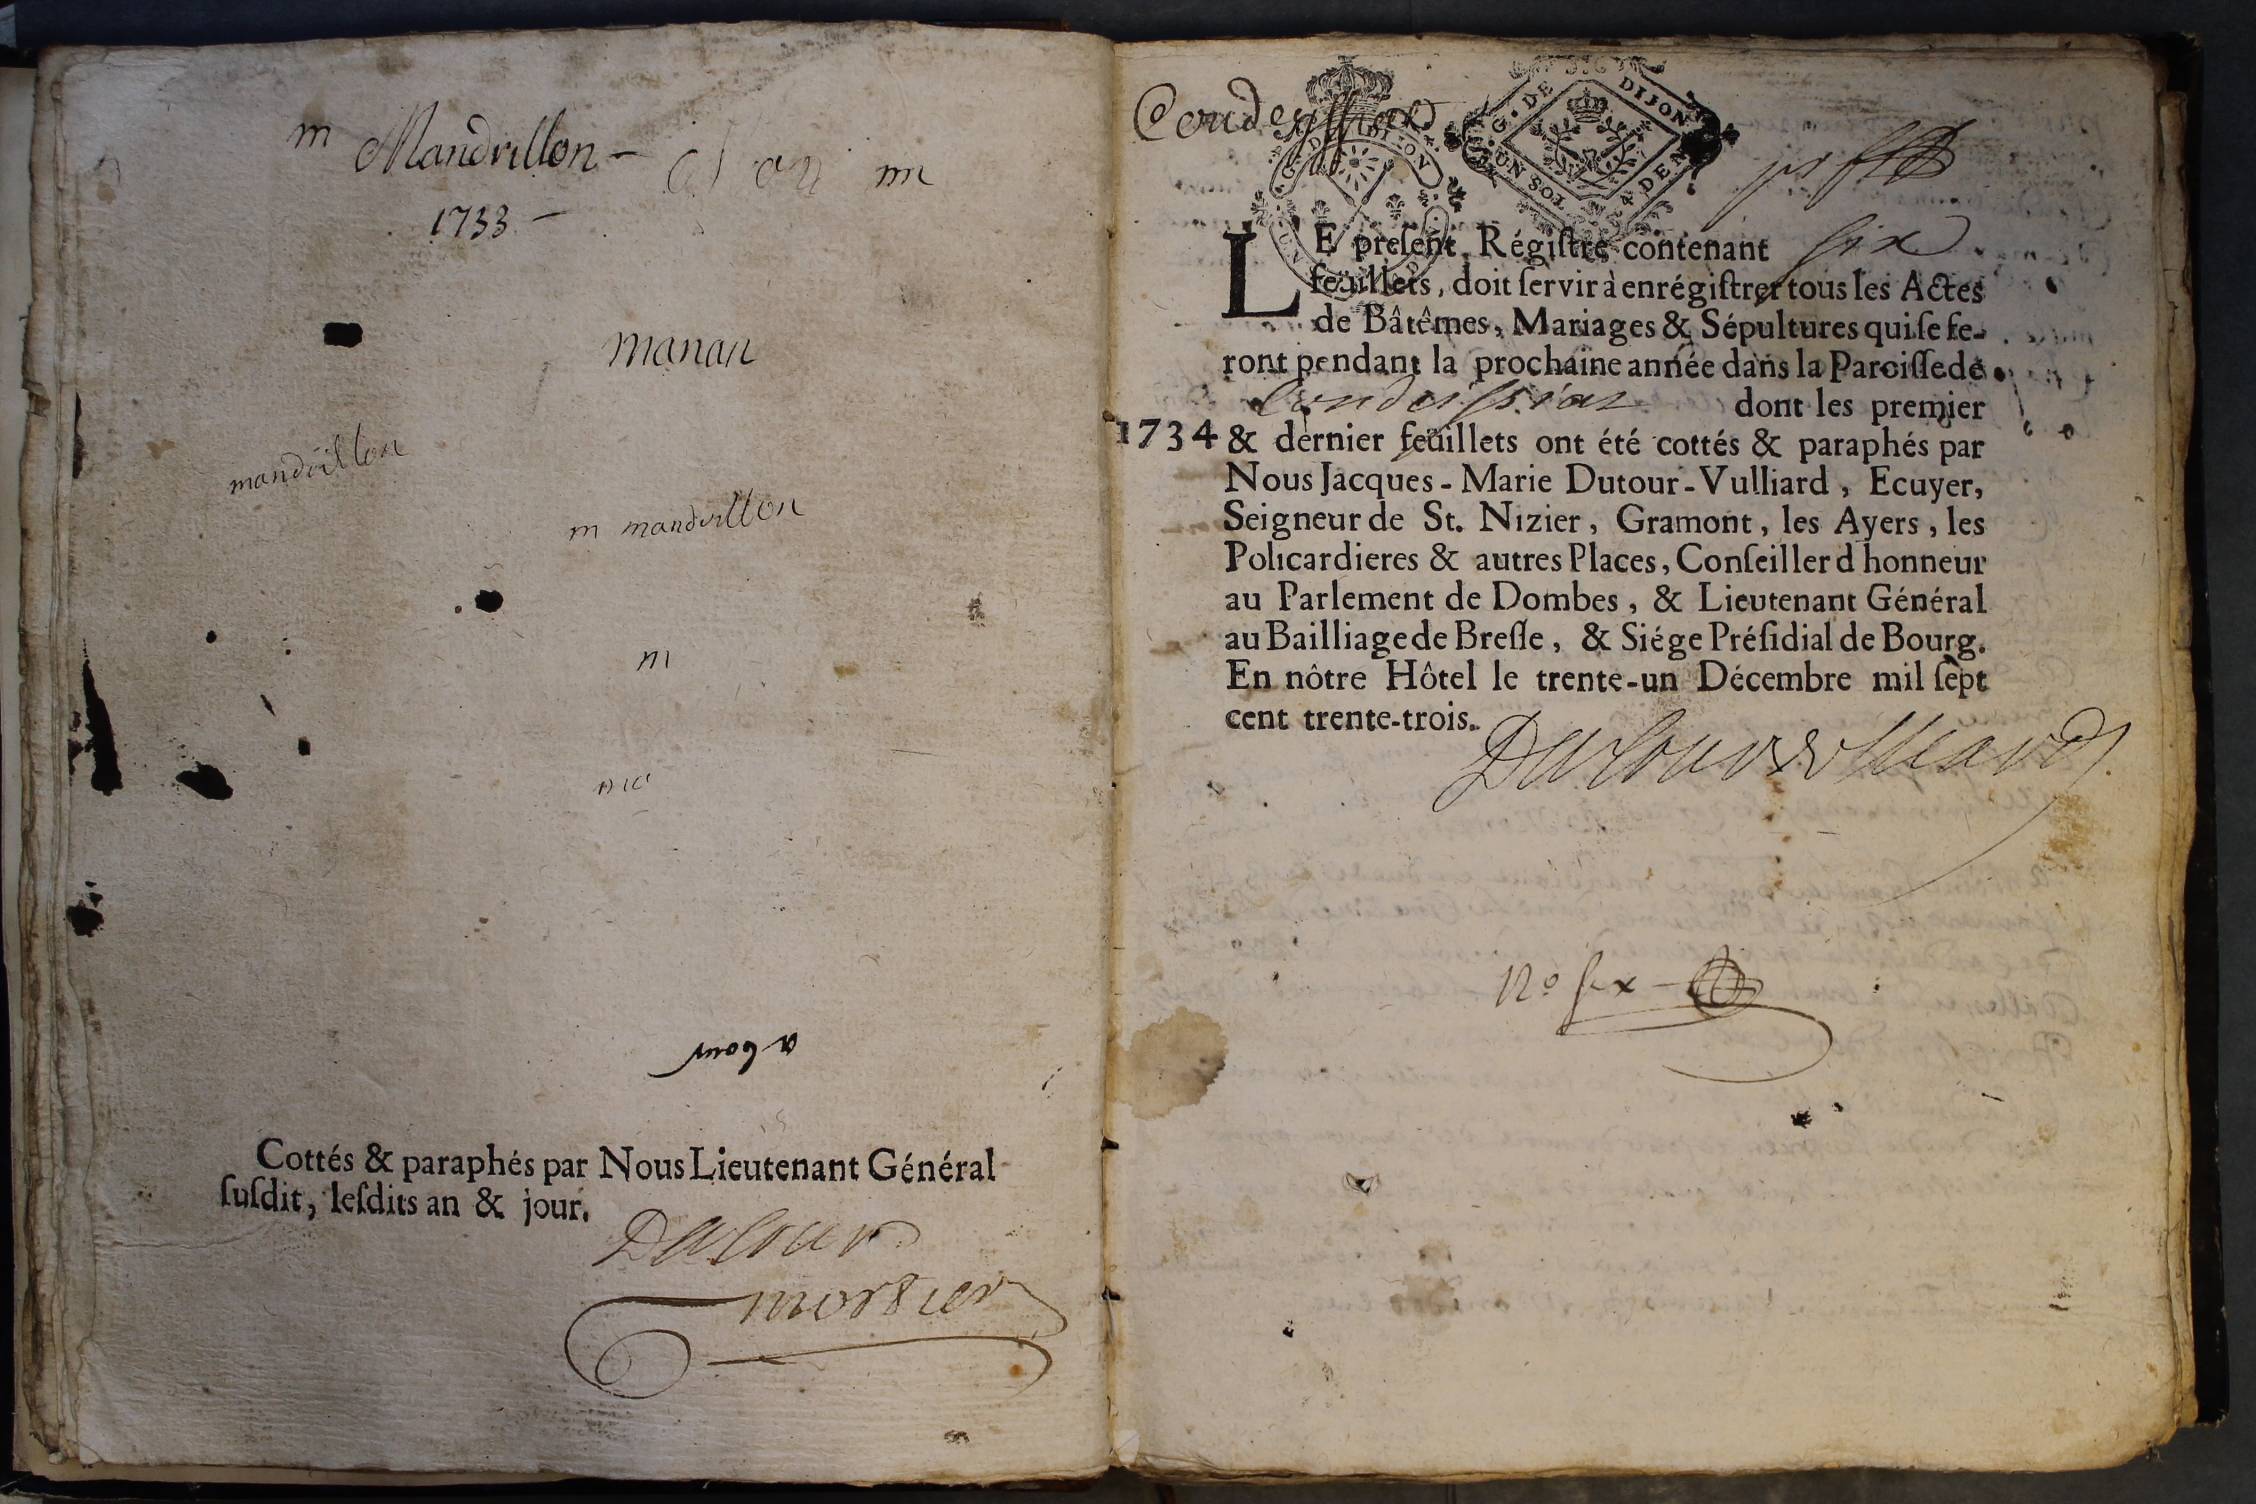 m Mandrillon
1733
manan
mandrillon
m mandrillon
m
Cottés & paraphés par Nous Lieutenant Général
ſuſdit, leſdits an & jour.
Dutour
mortier
G. DE DIJON
UN SOL 4 DEN
six
LE preſent Régiſtre contenant
feüillets, doit ſervir à enrégiſtrer tous les Actes
de Bâtêmes, Mariages & Sépultures qui ſe fe-
ront pendant la prochaine année dans la Paroiſſe de
Condeissiat dont les premier
1734 & dernier feüillets ont été cottés & paraphés par
Nous Jacques-Marie Dutour-Vulliard, Ecuyer,
Seigneur de St. Nizier, Gramont, les Ayers, les
Policardieres & autres Places, Conſeiller d honneur
au Parlement de Dombes, & Lieutenant Général
au Bailliage de Breſſe, & Siége Préſidial de Bourg.
En nôtre Hôtel le trente-un Décembre mil ſept
cent trente-trois.
Dutour Vulliard
No six